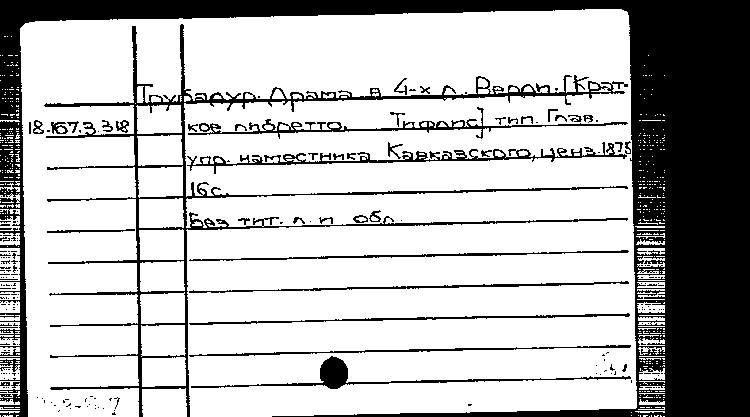 Трубадур. Драма в 4-х д. Верди. [Крат-
18.167.3.318 кое либретто. Тифлис], тип. Глав.
упр. наместника Кавказского, ценз. 1875
16с.
Без тит. л. и обл.